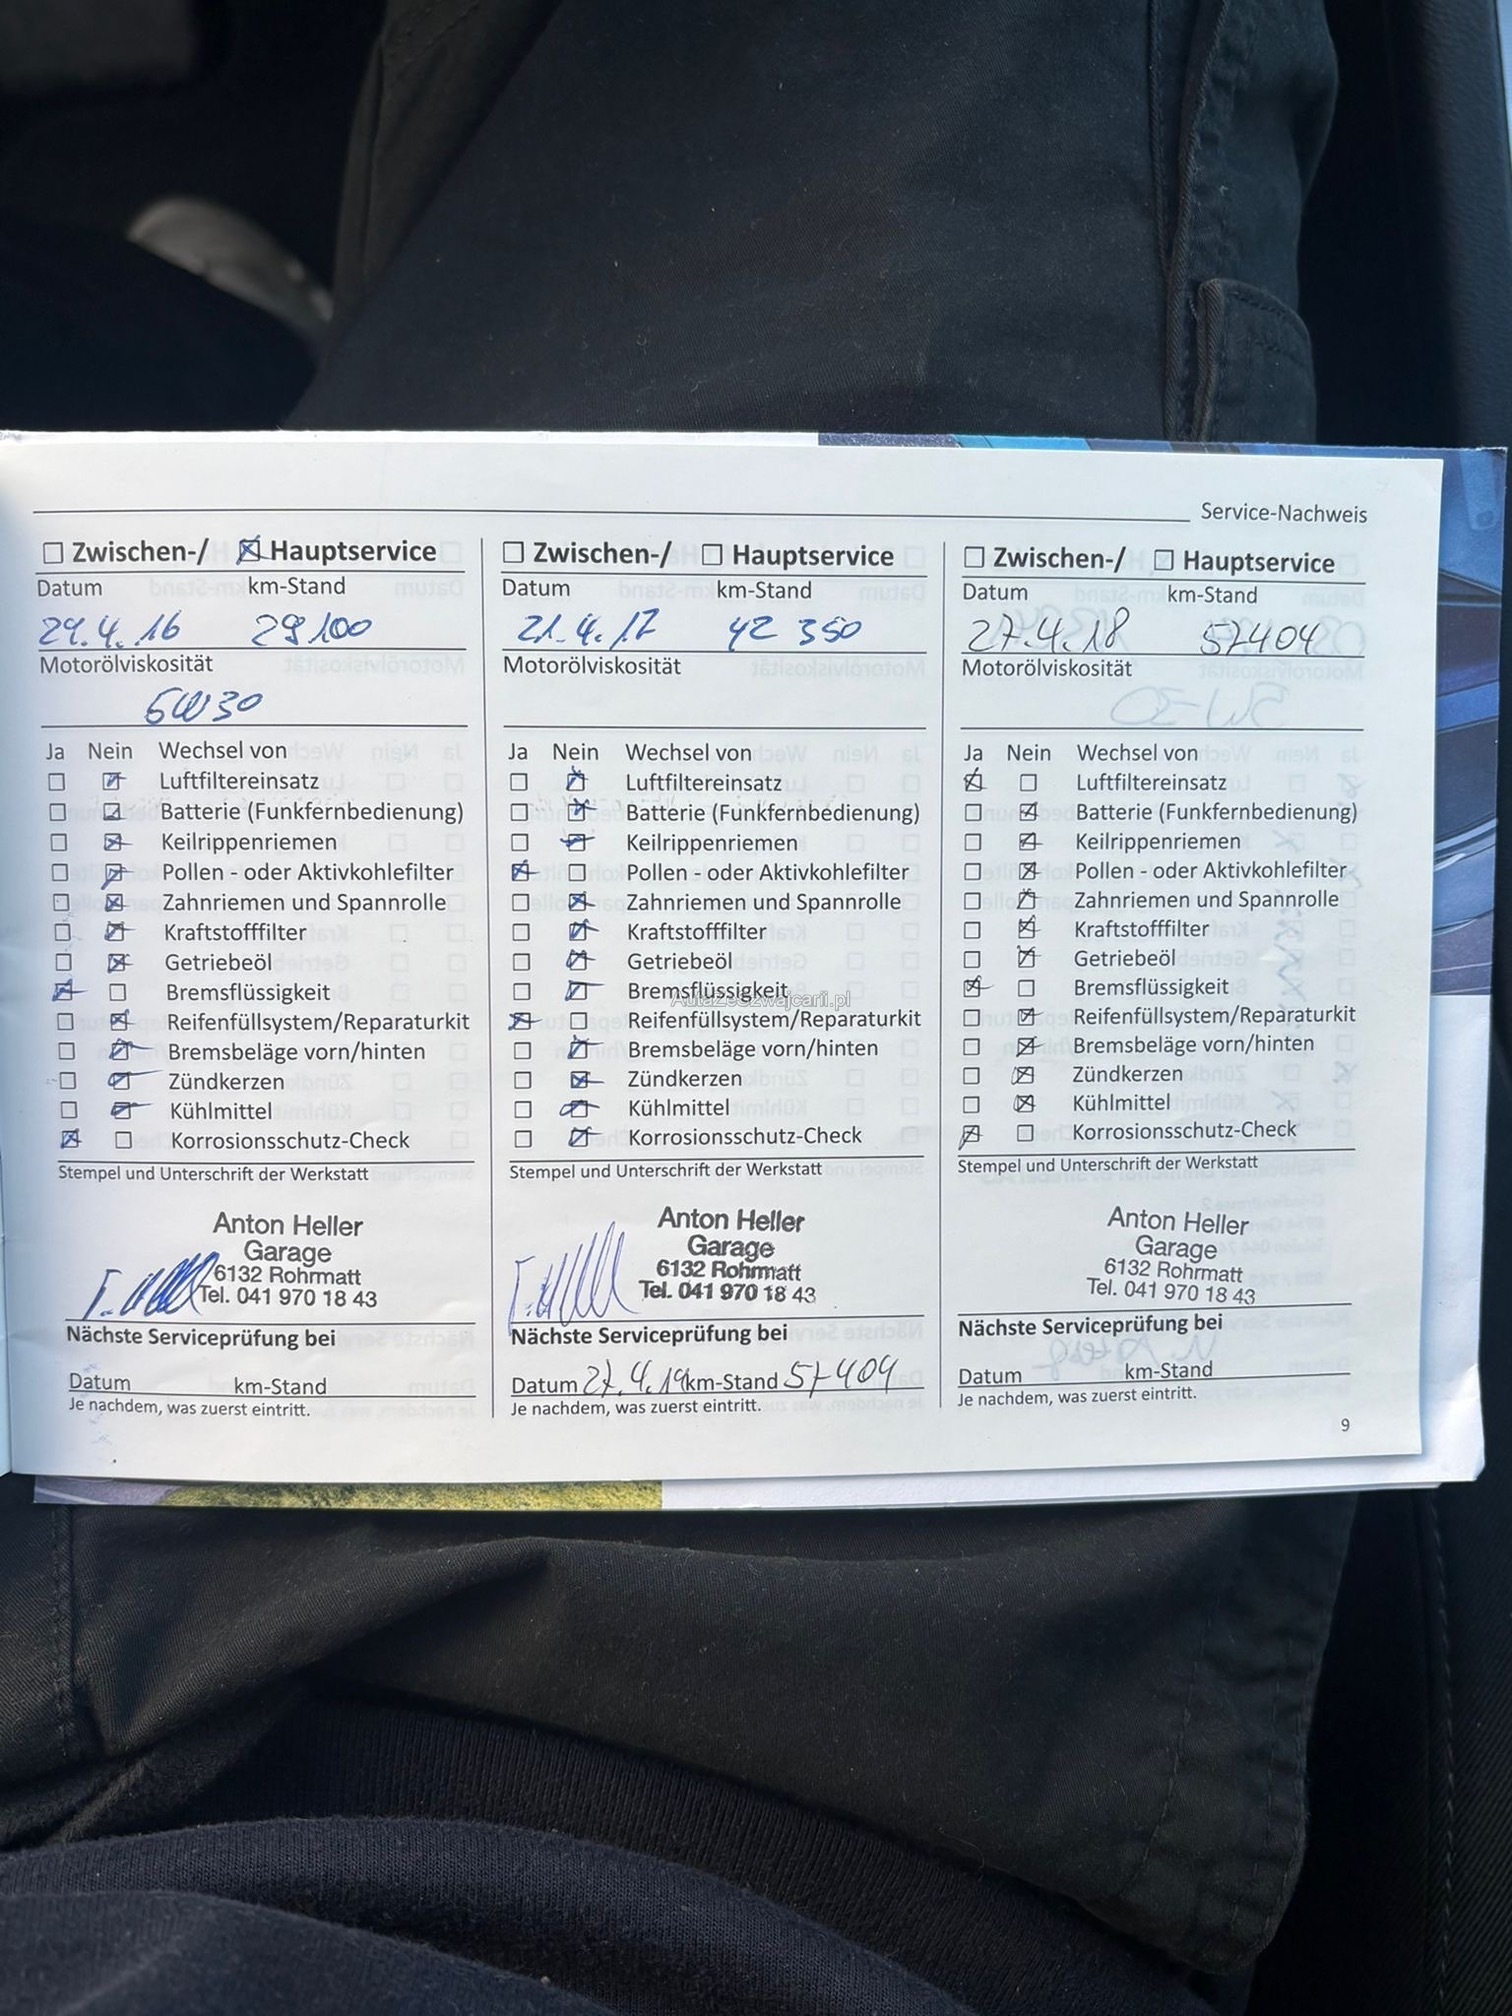 Service-Nachweis
Zwischen-/ Hauptservice
Datum km-Stand
29.4.16 29100
Motorölviskosität
5W30
Ja Nein Wechsel von
Luftfiltereinsatz
Batterie (Funkfernbedienung)
Keilrippenriemen
Pollen - oder Aktivkohlefilter
Zahnriemen und Spannrolle
Kraftstofffilter
Getriebeöl
Bremsflüssigkeit
Reifenfüllsystem/Reparaturkit
Bremsbeläge vorn/hinten
Zündkerzen
Kühlmittel
Korrosionsschutz-Check
Stempel und Unterschrift der Werkstatt
Anton Heller
Garage
6132 Rohrmatt
Tel. 041 970 18 43
Nächste Serviceprüfung bei
Datum km-Stand
Je nachdem, was zuerst eintritt.
Zwischen-/ Hauptservice
Datum km-Stand
21.4.17 42 350
Motorölviskosität
Ja Nein Wechsel von
Luftfiltereinsatz
Batterie (Funkfernbedienung)
Keilrippenriemen
Pollen - oder Aktivkohlefilter
Zahnriemen und Spannrolle
Kraftstofffilter
Getriebeöl
Bremsflüssigkeit
AutaZeSzwajcarii.pl
Reifenfüllsystem/Reparaturkit
Bremsbeläge vorn/hinten
Zündkerzen
Kühlmittel
Korrosionsschutz-Check
Stempel und Unterschrift der Werkstatt
Anton Heller
Garage
6132 Rohrmatt
Tel. 041 970 18 43
Nächste Serviceprüfung bei
Datum 27.4.19 km-Stand 57404
Je nachdem, was zuerst eintritt.
Zwischen-/ Hauptservice
Datum km-Stand
27.4.18 57404
Motorölviskosität
Ja Nein Wechsel von
Luftfiltereinsatz
Batterie (Funkfernbedienung)
Keilrippenriemen
Pollen - oder Aktivkohlefilter
Zahnriemen und Spannrolle
Kraftstofffilter
Getriebeöl
Bremsflüssigkeit
Reifenfüllsystem/Reparaturkit
Bremsbeläge vorn/hinten
Zündkerzen
Kühlmittel
Korrosionsschutz-Check
Stempel und Unterschrift der Werkstatt
Anton Heller
Garage
6132 Rohrmatt
Tel. 041 970 18 43
Nächste Serviceprüfung bei
Datum km-Stand
Je nachdem, was zuerst eintritt.
9